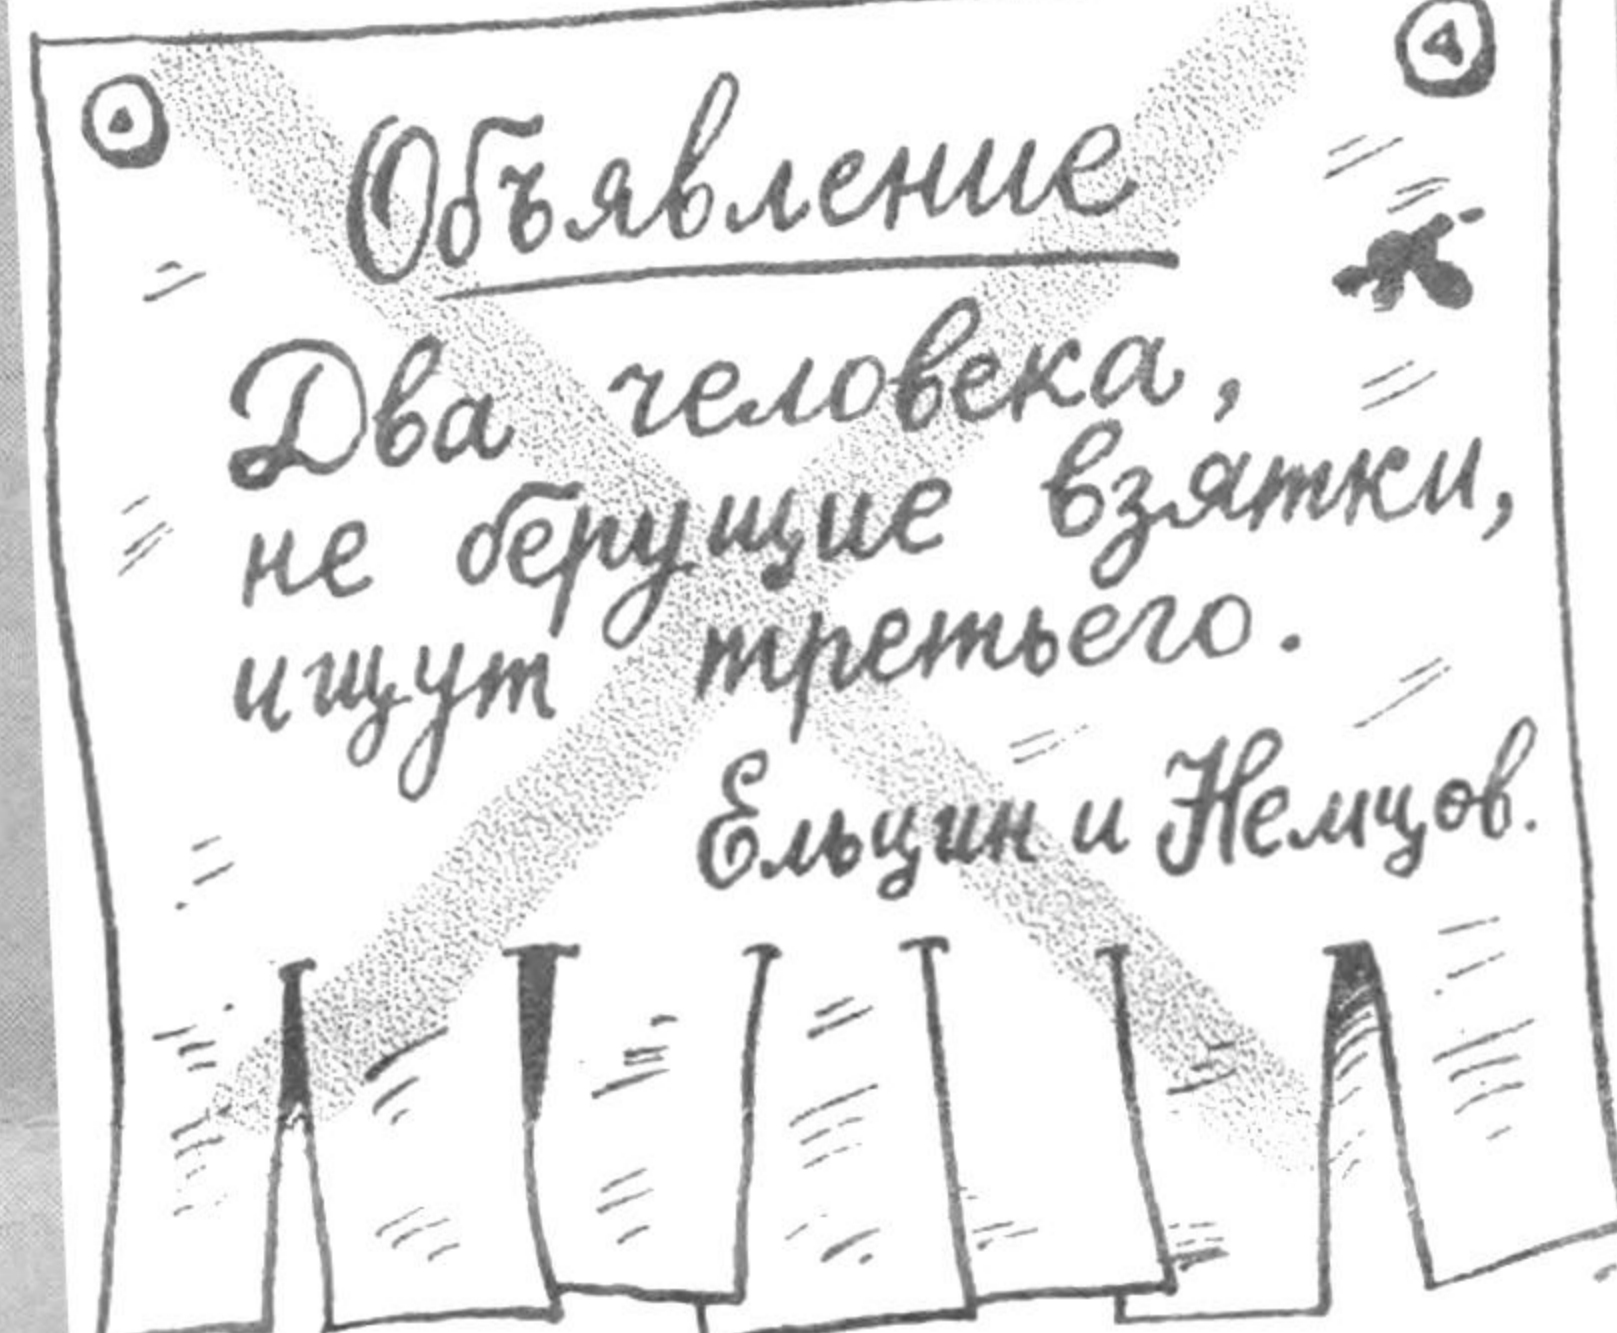 Объявление
Два человека,
не берущие взятки,
ищут третьего.
Ельцин и Немцов.